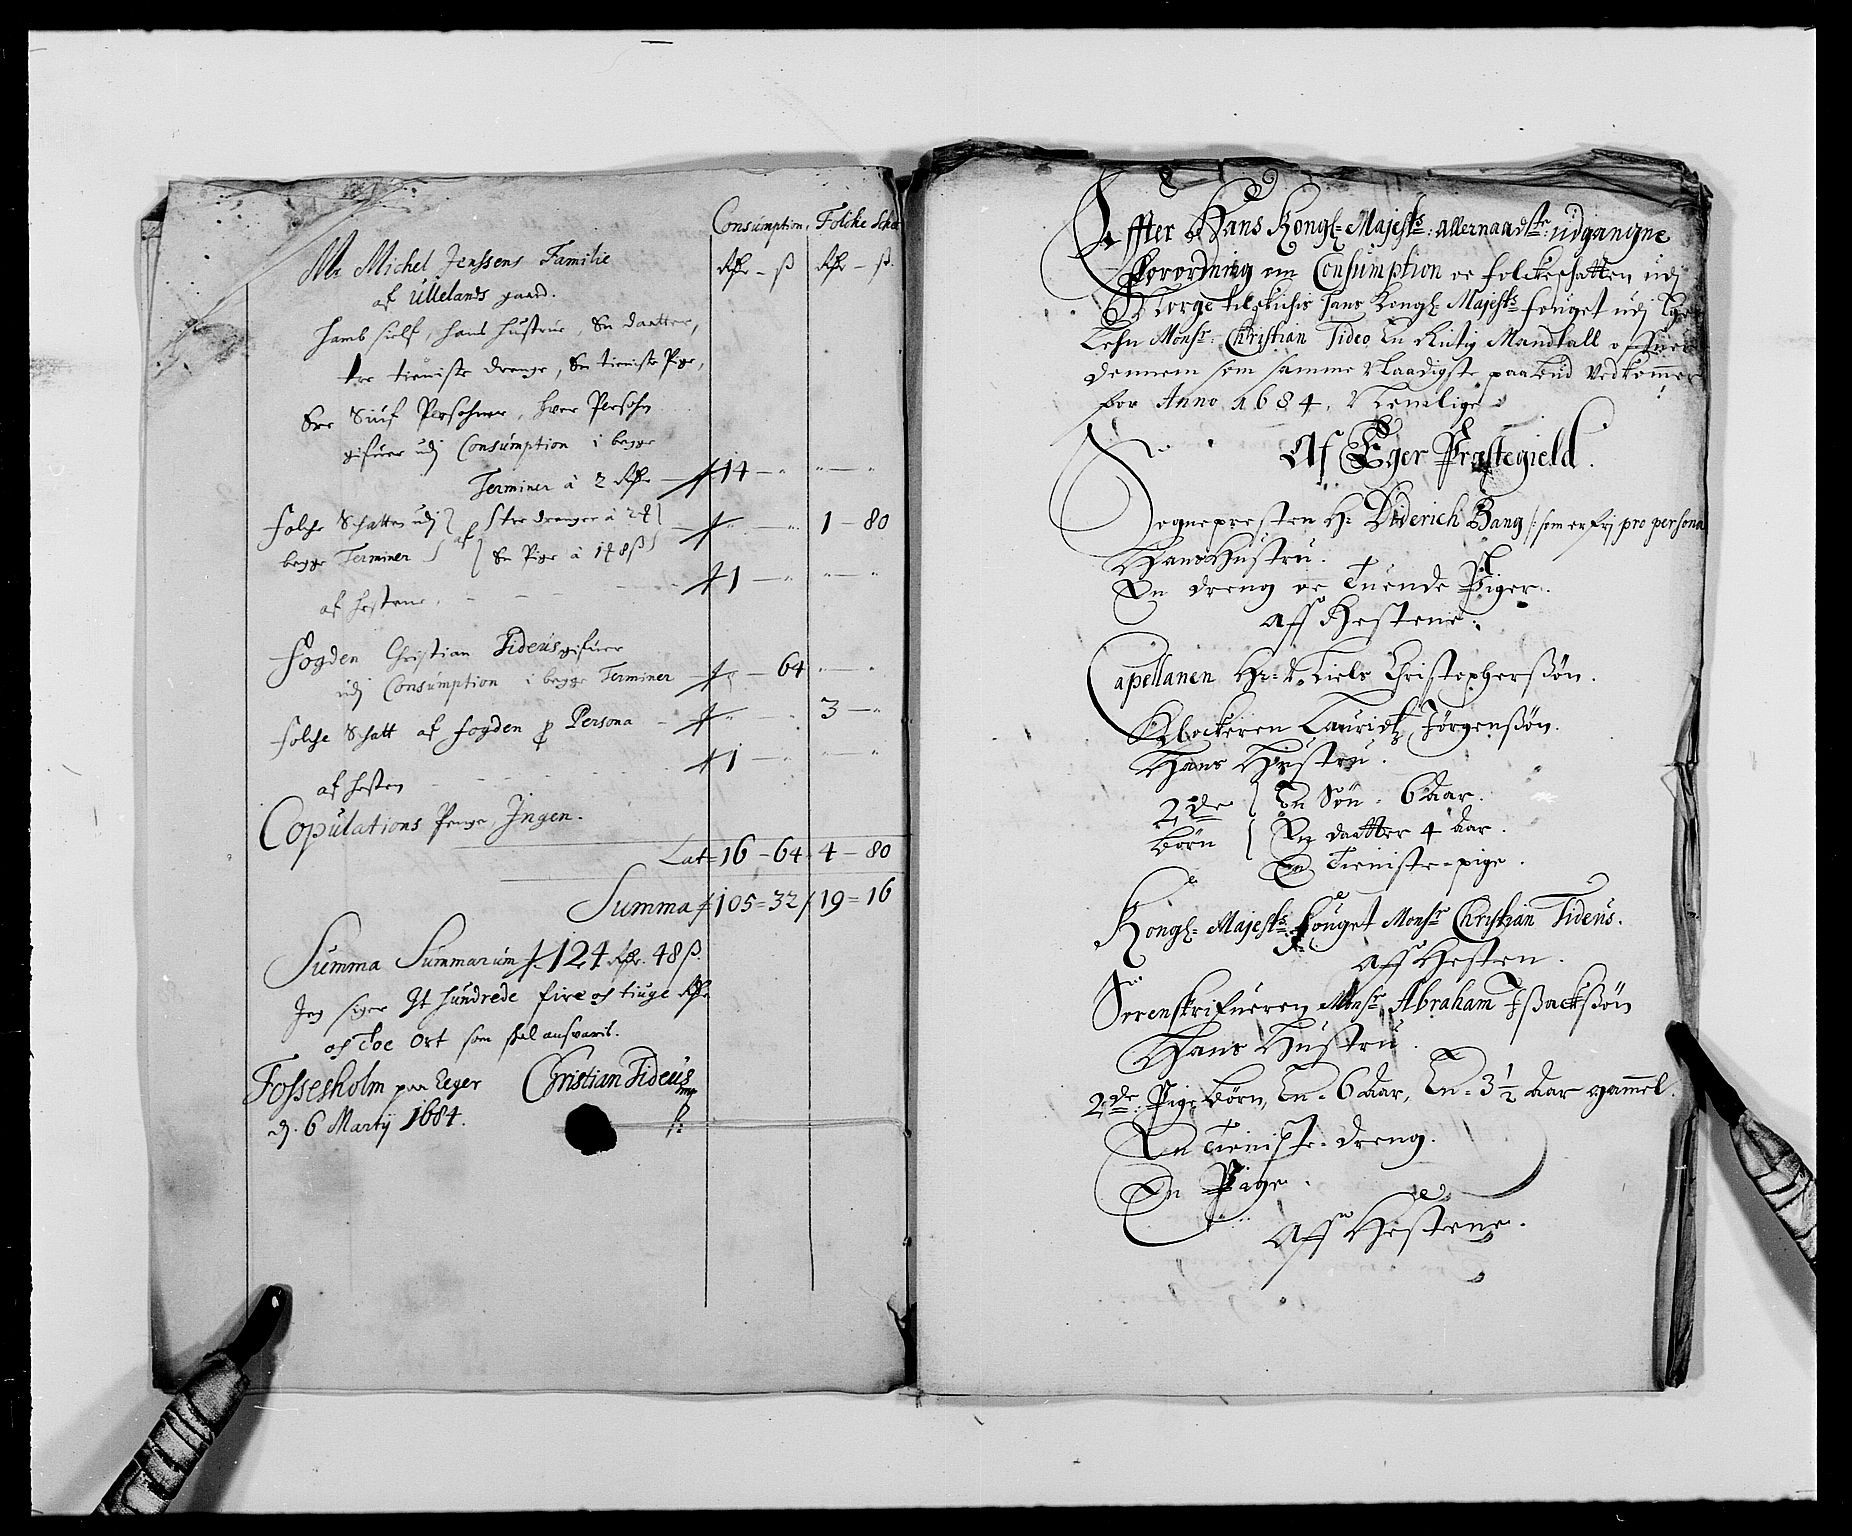 Consumption, Folcke Schat
Rdr – ß Rdr – ß.
Mr Michel Jenssens Familie
af Ullelands gaard.
Hamb sielf, hans hustrue, En daatter,
tre tieniste drenge, En tieniste Pige,
Ere Siuf Persohner, hver Persohn
gifuer udj Consumption i begge
Terminer à 2 Rdr — 14 – „ „ – „
folche Schatten udj af tre drenge à 24
begge Terminer En Pige à 1 48 ß – „ – „ 1 – 80
af hestene, – – – 1 – „ „ – „
Fogden Christian Tideus gifuer
udj Consumption i begge Terminer „ – 64 „ – „
folche Schatt af fogden p Persona – „ – „ 3 – „
af hesten – 1 – „ „ – „
Copulations Penge, Ingen.
Lat= 16 – 64 4 – 80
Summa 105 = 32 19 = 16
Summa Summarum 124 Rdr. 48 ß.
Jeg siger It hundrede fire og tiuge Rdr
og Toe Ort som skal ansvaris.
Fossesholm paa Eger Christian Tideus
d. 6 Martij 1684. mp
Effter Hans Kongl= Majests: allernaadste: udgangne
Forordning om Consumption oc folckeskatten udj
Norge tilskichis Hans Kongl Majests fouget udj Eger
Lehn Monsr: Christian Tideo En Rictig Mandtall offuer
dennem som samme Naadigste paabud Vedkommer
for Anno 1684, Nemlige:
Af Eger Præstegield.
Sognepresten Hr Diderich Bang /: som er frj pro persona
Hans Hustru.
En dreng oc Tuende Piger.
Aff Hestene.
Capellanen Hr: Niels Christopherssøn.
Klockeren Lauridtz Jørgenssøn.
Hans Hustru.
2de En Søn – 6 Aar.
børn En daatter 4 Aar.
En Tieniste-pige.
Kongl= Majests: fouget Monsr Christian Tideus.
Aff Hesten.
Sorenskrifueren Monsr. Abraham Jssackssøn
Hans Hustru.
2de: Pige børn, En – 6 Aar, En – 3 1/2 Aar gammel.
En Tieniste-dreng.
En Pige.
Aff Hestene.